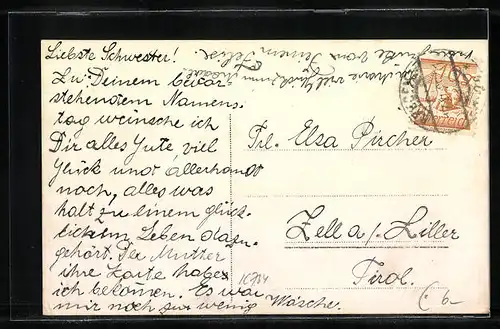 Liebste Schwester!
Zu Deinem bevor-
stehendem Namens-
tag wünsche ich
Dir alles Gute viel
Glück und allerhandt
noch, alles was
halt zu einem glück-
lichem Leben dazu-
gehört. Der Mutter
ihre Karte habe
ich bekommen. Es war
mir noch zu wenig Wäsche.
von Deinem
Frl. Elsa Pircher
Zell a/Ziller
Tirol.